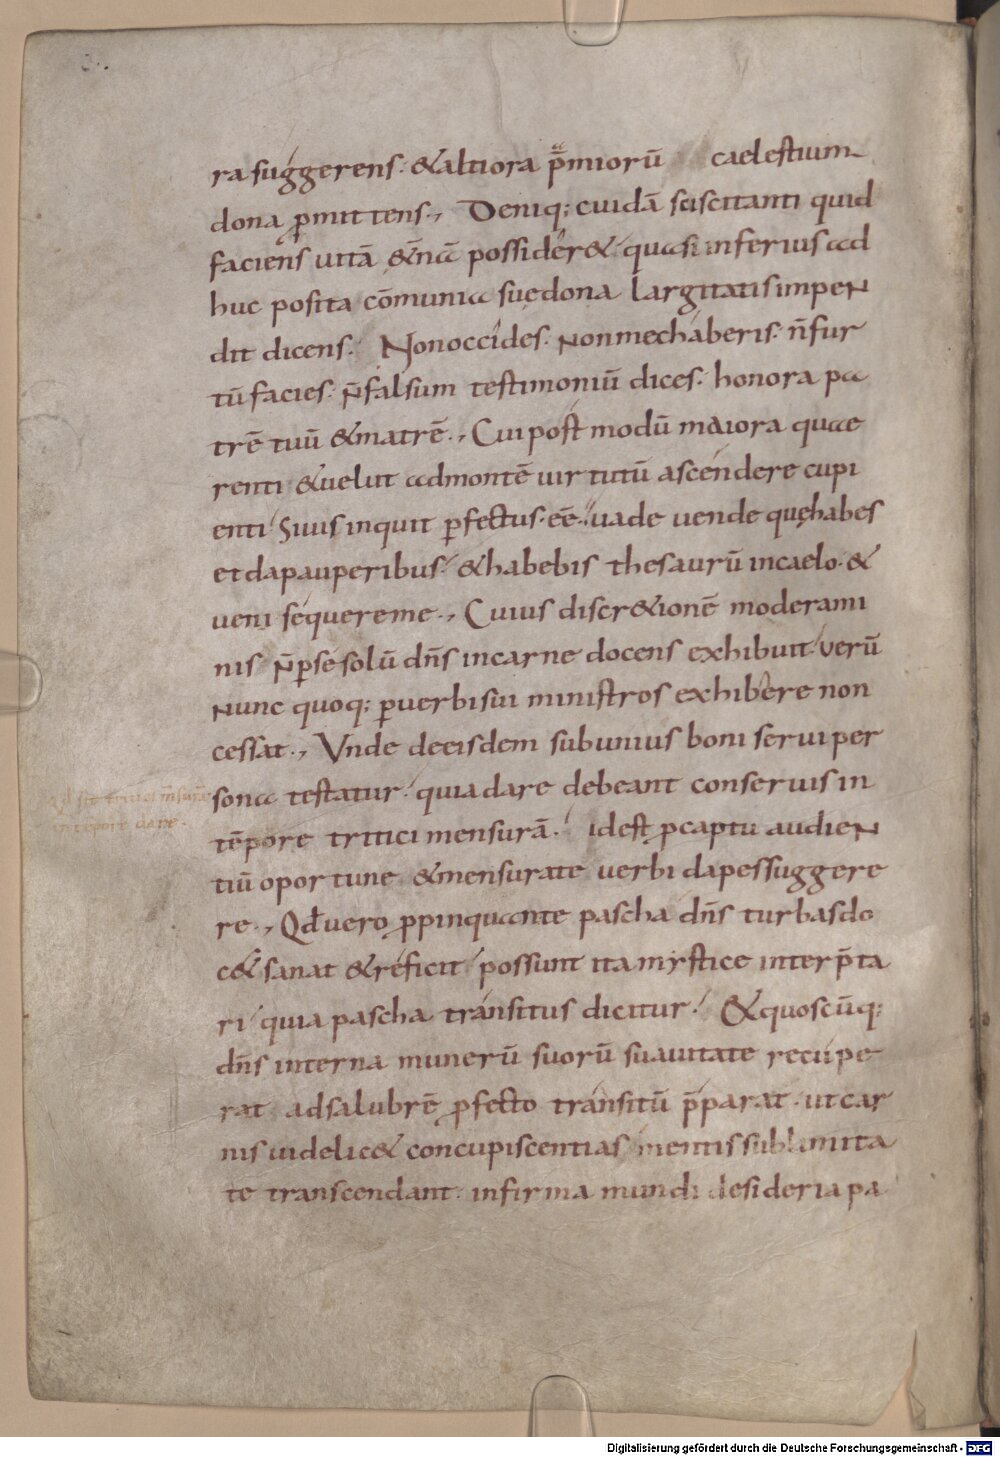 ra suggerens· &altiora p̄miorū caelestium
dona ꝑmittens·, Deniq; cuidā sciscitanti quid
faciens uitā &̄nā possider& quasi inferius ad
huc posita cōmunia suę dona largitatis impen
dit dicens· Non occides· Non mechaberis· n̄ fur
tū facies· N̄ falsum testimoniū dices· honora pa
trē tuū &matrē·, Cui post modū maiora quae
renti &uelut ad montē uirtutū ascendere cupi
enti Si uis inquit ꝑfectus· eē· uade uende quę habes
et da pauperibus· &habebis thesaurū in caelo· &
ueni sequere me·, Cuius discr&ionē moderami
nis N̄ ꝑ se solū dn̄s in carne docens exhibuit· verū
Nunc quoq; ꝑ uerbi sui ministros exhibere non
cessat·, Vnde de eisdem sub unius boni serui per
sona testatur· quia dare debeant conseruis in
tēpore tritici mensurā· id est ꝓ captu audien
tiū oportune &mensurate uerbi dapes suggere
re·, Qđ uero ꝓpinquante pascha dn̄s turbas do
c& sanat &reficit possunt ita mystice interp̄ta
ri quia pascha transitus dicitur· &quoscūq;
dn̄s interna munerū suorū suauitate recupe
rat ad salubrē ꝓfecto transitū p̄parat· ut car
nis uidelic& concupiscentias mentis sublimita
te transcendant· infirma mundi desideria pa
in tēpore dare·
Digitalisierung gefördert durch die Deutsche Forschungsgemeinschaft - DFG